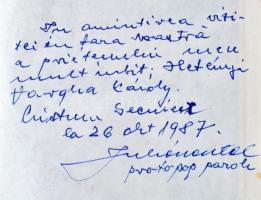 In amintirea vizi-
tei în țara noastră
a prietenului meu
mult iubit, Hetényi
Varga Károly.
Cristuru Secuiesc
la 26 okt 1987.
protopop paroh